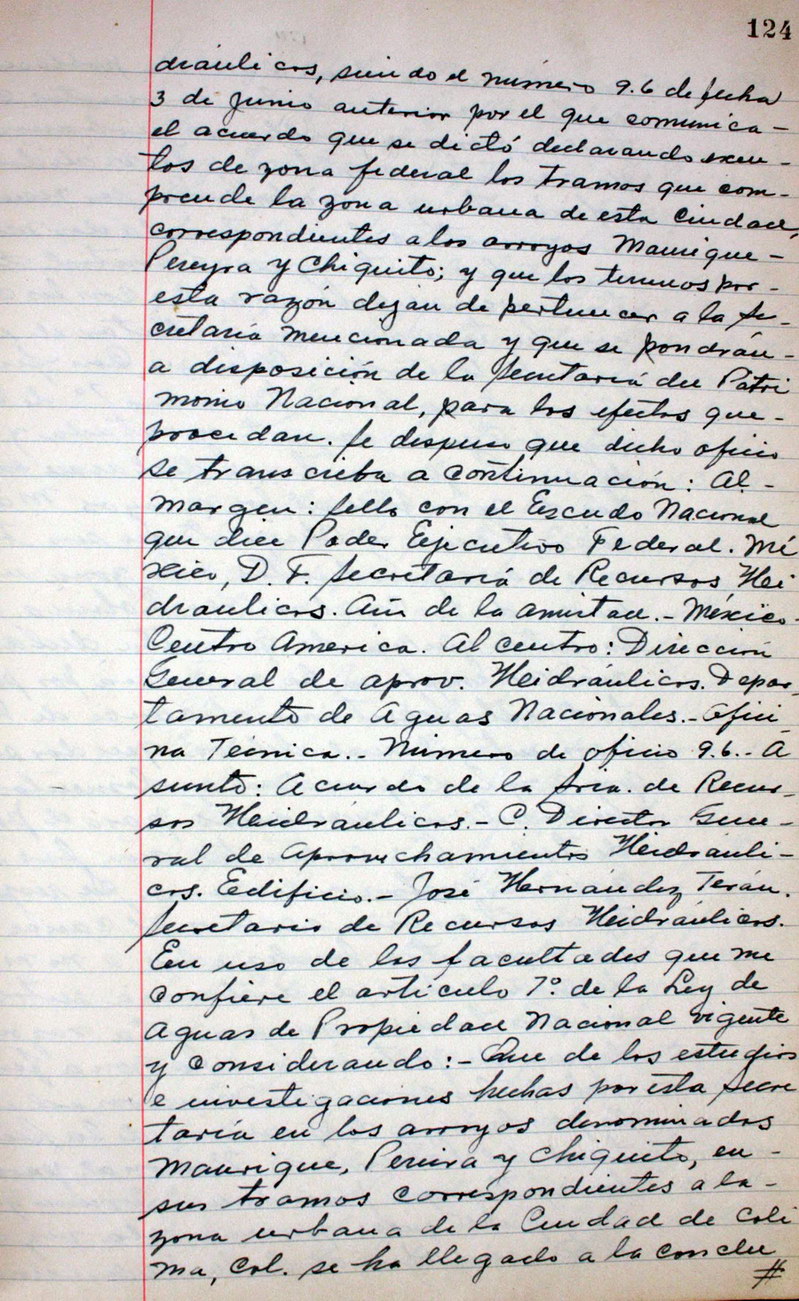 124
dráulicos, siendo el número 9.6 de fecha
3 de Junio anterior por el que comunica-
el acuerdo que se dictó declarando exen-
tos de zona federal los tramos que com-
prende la zona urbana de esta Ciudad,
correspondientes a los arroyos Manrique-
Pereyra y Chiquito; y que los terrenos por-
esta razón dejan de pertenecer a la Se-
cretaría mencionada y que se pondrán-
a disposición de la Secretaría del Patri
monio Nacional, para los efectos que-
procedan. Se dispuso que dicho oficio
se transcriba a continuación: Al-
margen: Sello con el Escudo Nacional
que dice Poder Ejecutivo Federal. Mé
xico, D. F. Secretaría de Recursos Hei
draulicos. Año de la amistad.- México-
Centro America. Al centro: Dirección
General de aprov. Heidráulicos. Depar-
tamento de Aguas Nacionales.- Ofici
na Tecnica.- Número de oficio 9.6.- A
sunto: Acuerdo de la Sria. de Recur-
sos Heidráulicos.- C. Director Gene-
ral de Aprovechamientos Heidráuli-
cos. Edificio.- José Hernández Terán.
Secretario de Recursos Heidráulicos.
En uso de las facultades que me
confiere el artículo 7º de la Ley de
Aguas de Propiedad Nacional vigente
y considerando:- Que de los estudios
e investigaciones hechas por esta Secre
taría en los arroyos denominados
Manrique, Pereira y Chiquito, en-
sus tramos correspondientes a la-
zona urbana de la Ciudad de Coli
ma, Col. se ha llegado a la conclu
#